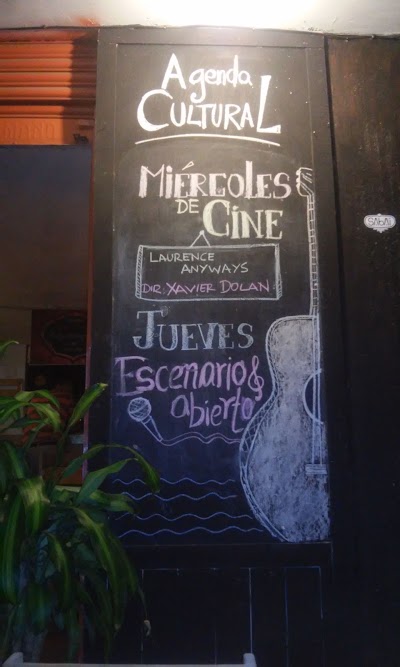 Agenda
CULTURAL
MIÉRCOLES
DE CINE
LAURENCE
ANYWAYS
DIR: XAVIER DOLAN
JUEVES
Escenario &
abierto
SABAI